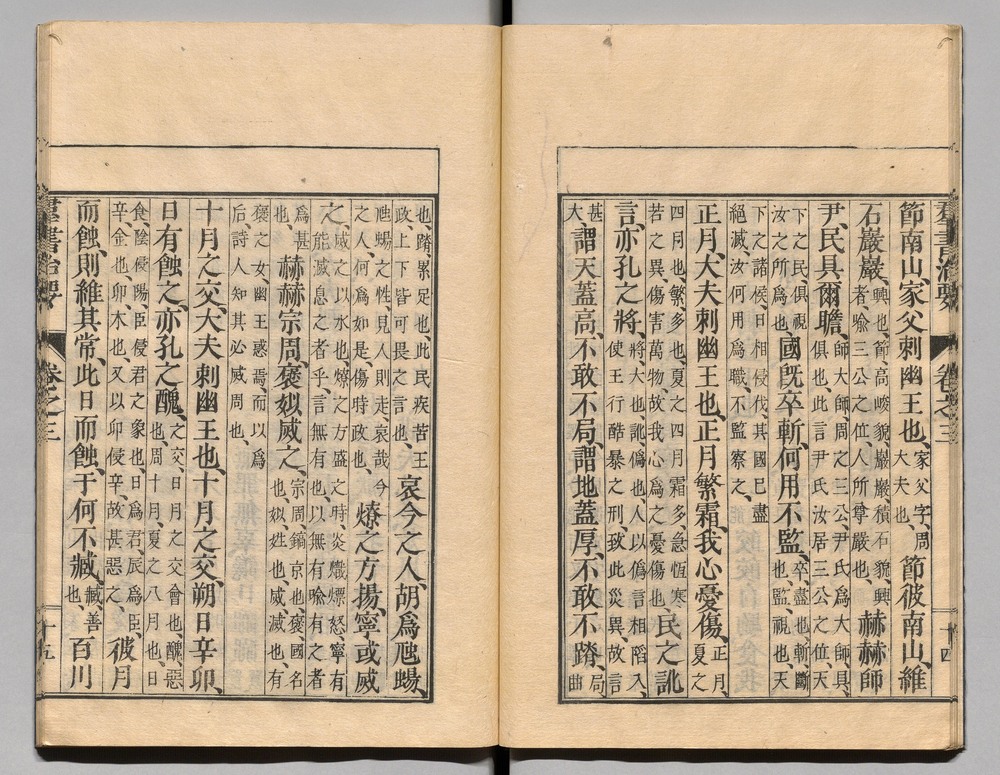 羣書治要 卷之三 十四
節南山、家父刺幽王也、家父字、周大夫也、節彼南山、維
石巖巖、興也、節、高峻貌、巖巖、積石貌、興者喩三公之位、人所尊嚴也、赫赫師
尹、民具爾瞻、師大師、周之三公、尹、尹氏爲大師、具、俱也、此言尹氏汝居三公之位、天
下之民、俱視汝之所爲也、國旣卒斬、何用不監、卒、盡也、斬、斷也、監、視也、天
下之諸侯、日相侵伐、其國已盡絕滅、汝何用爲職、不監察之、
正月、大夫刺幽王也、正月繁霜、我心憂傷、正月、夏之
四月也、繁、多也、夏之四月霜多、急恆寒苦之異、傷害萬物、故我心爲之憂傷也、民之訛
言、亦孔之將、將大也、訛、僞也、人以僞言相陷入、使王行酷暴之刑、致此災異、故言
甚大、謂天蓋高、不敢不局、謂地蓋厚、不敢不蹐、局、曲
也、蹐、累足也、此民疾苦王政、上下皆可畏之言也、哀今之人、胡爲虺蜴、
虺蜴之性、見人則走、哀哉今之人、何爲如是、傷時政也、燎之方揚、寧或烕
之、烕之以水也、燎之方盛之時、炎熾熛怒、寧有能滅息之者乎、言無有也、以無有喩有之者
爲甚也、赫赫宗周、褒姒烕之、宗周、鎬京也、褒、國名也、姒、姓也、烕、滅也、有
褒之女、幽王惑焉、而以爲后、詩人知其必烕周也、
十月之交、大夫刺幽王也、十月之交、朔日辛卯、
日有蝕之、亦孔之醜、之交、日月之交會也、醜、惡也、周十月、夏之八月也、日
食、陰侵陽、臣侵君之象也、日爲君、辰爲臣、辛、金也、卯、木也、又以卯侵辛、故甚惡之、彼月
而蝕、則維其常、此日而蝕、于何不臧、臧、善也、百川
羣書治要 卷之三 十五